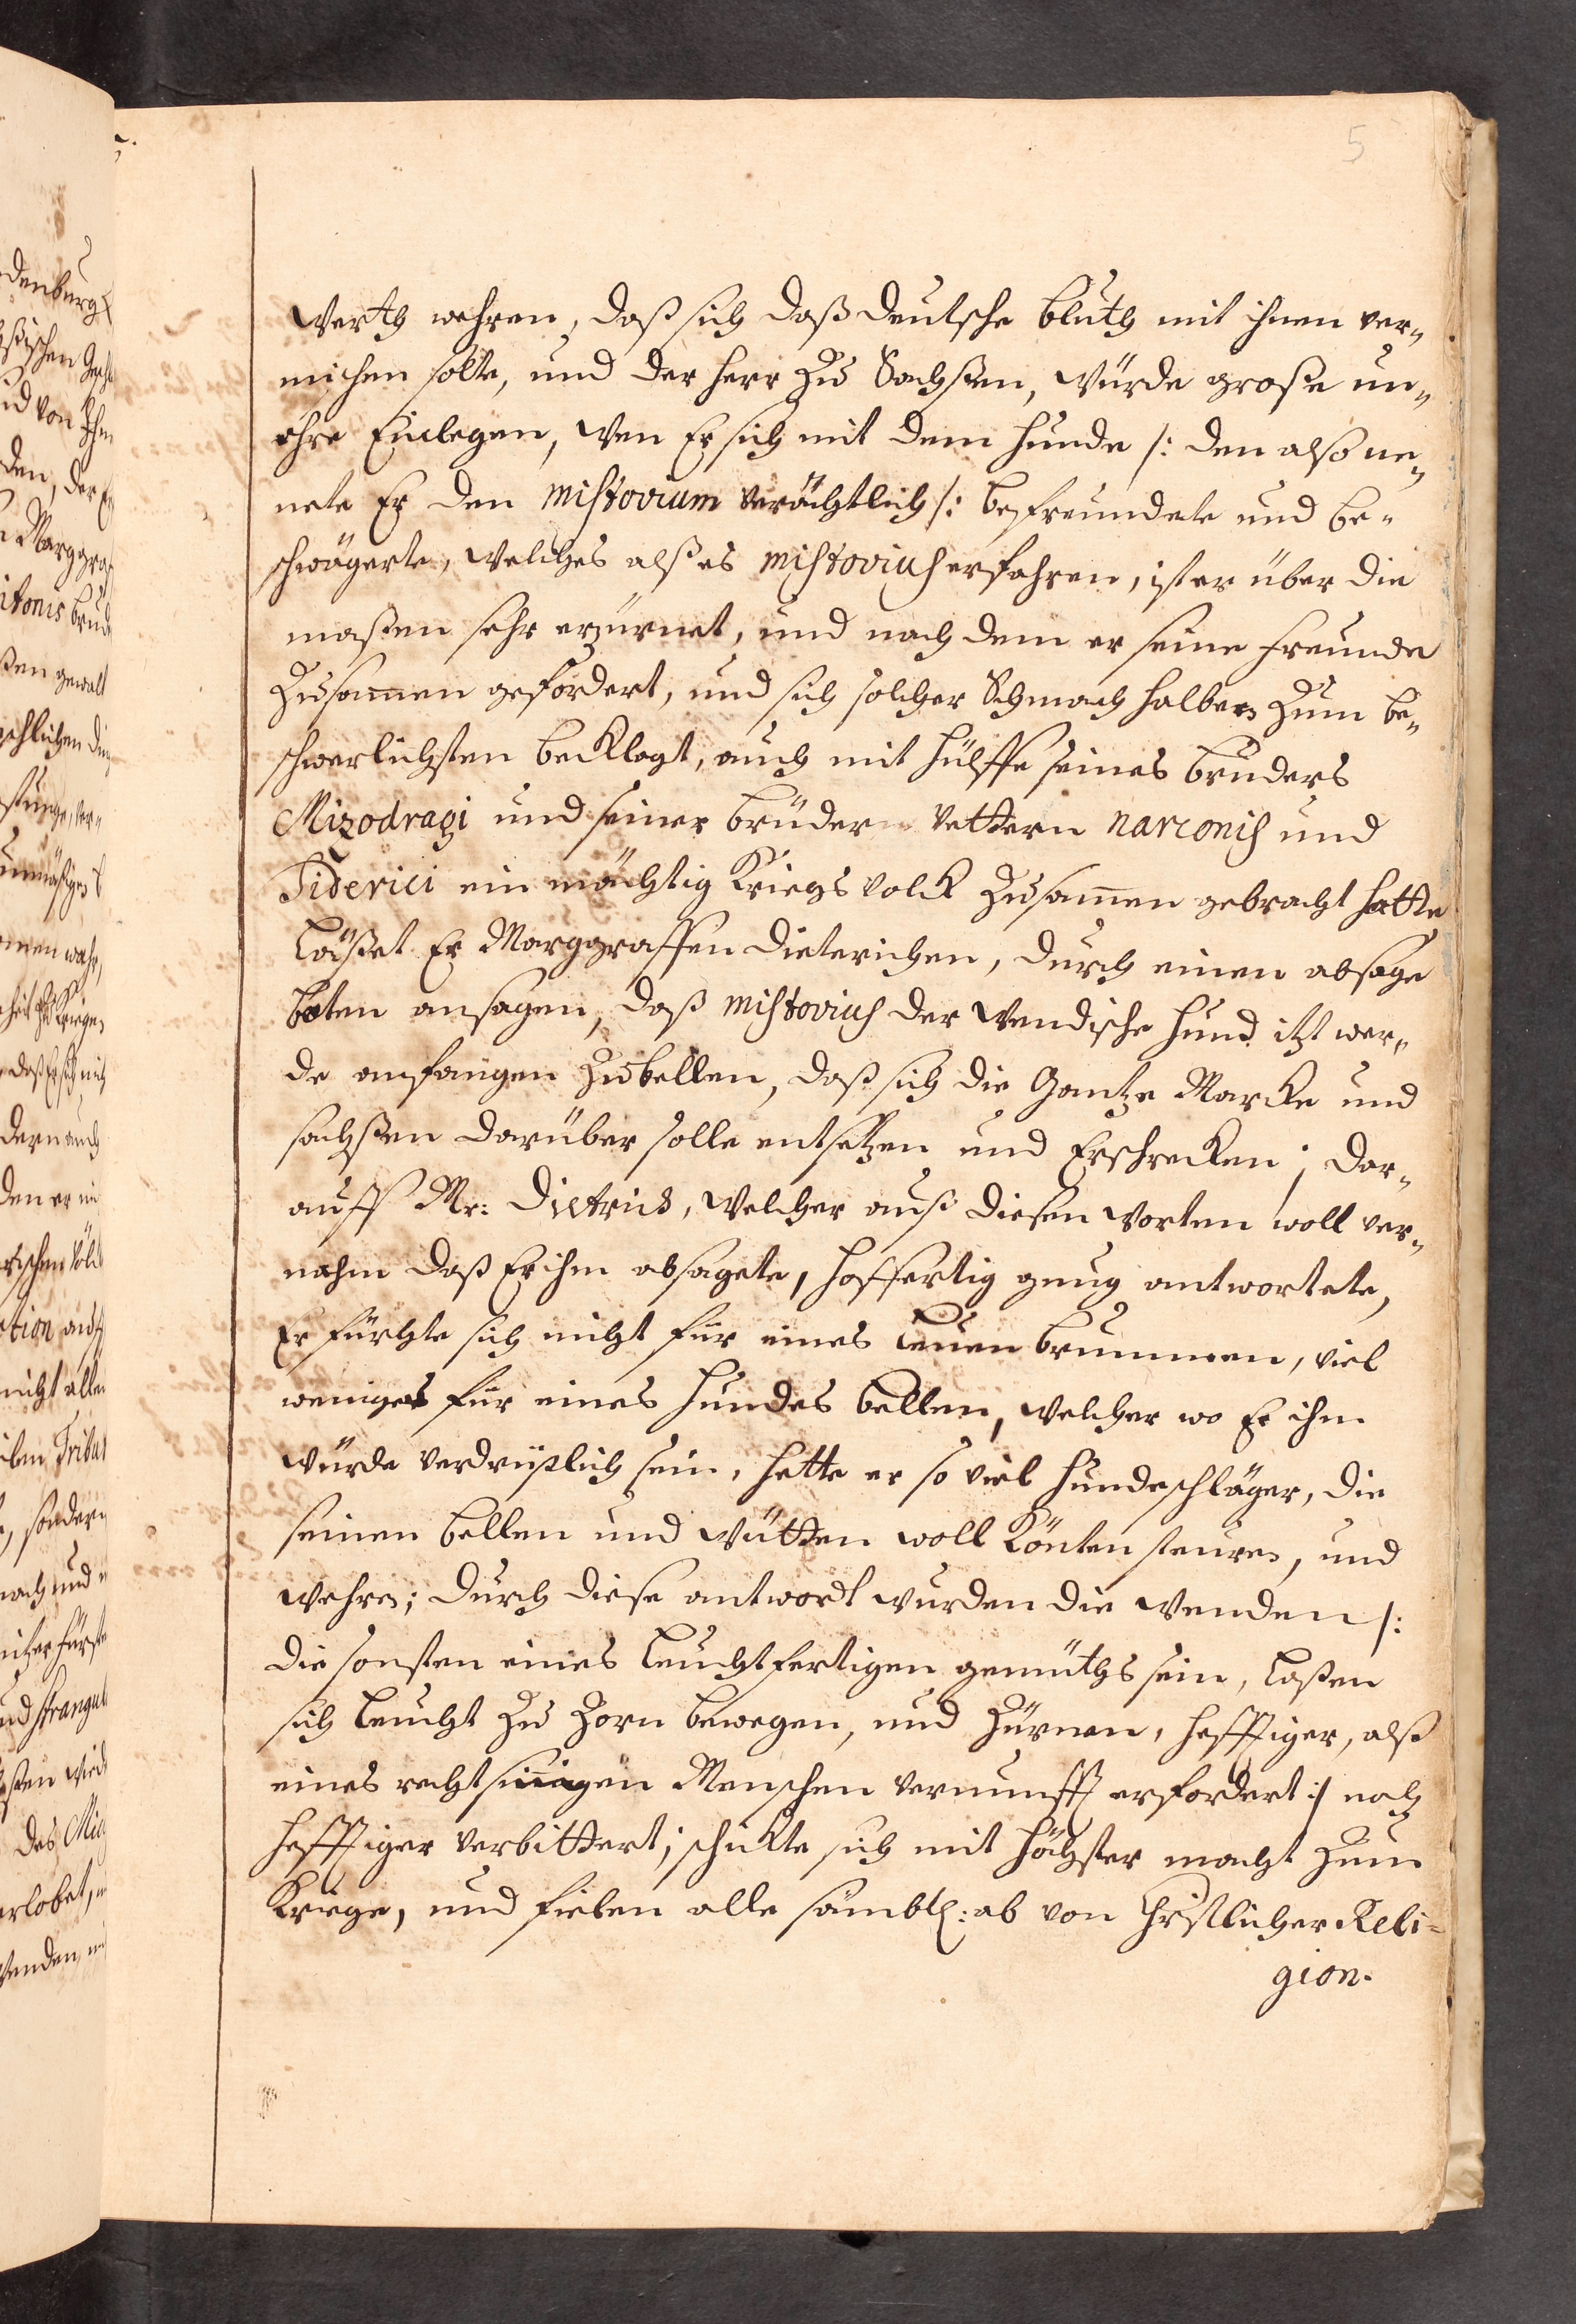 5
Werth wehren, daß sich daß deutsche bluth mit ihnen ver-
mischen solte, und der Herr zu Sachßen, würde große un-
ehre Einlegen, wen Er sich mit dem Hunde /: den also ne-
nete Er den Mistovium verächtlich /: befreundete und be-
schwägerte, welches alß es Mistovius erfahren, ist er über die
maßen sehr erzürnet, und nach dem er seine freunde
zusamen gefordert, und sich solcher Schmach halben zum be-
schwerlichsten becklagt, auch mit hülffe seines bruders
Mizodragi und seiner brüder Vettern Narconis und
Tiderici ein mächtig Kriegs Volck zusamen gebracht hatte
läßet Er Marggraffen Dieterichen, durch einen absage
boten ansagen, daß Mistovius der Wendische Hund itzt wer-
de anfangen zu bellen, daß sich die Gantze Marcke und
sachßen darüber solle entsetzen und Erschrecken; dar-
auff Mr: Dietrich, welcher auß diesen Worten woll ver-
nahm daß Er ihm absagete, hoffertig gnug antwortete,
Er fürchte sich nicht für eines Leuen brummen, viel
weniger für eines Hundes bellen, welcher wo Er ihm
würde verdrüßlich sein, hette er so viel Hundeschläger, die
seinen bellen und wütten woll könten steuren, und
wehren; durch diese antwort wurden die Wenden /:
die sonsten eines leuchtfertigen gemüths sein, laßen
sich leucht zu Zorn bewegen, und zürnen, hefftiger, alß
eines rechtsinnigen Menschen vernunfft erfordert :/ noch
hefftiger verbittert; schickte sich mit höchster macht zum
Kriege, und fielen alle sämbtl: ab von Christlicher Reli-
gion.